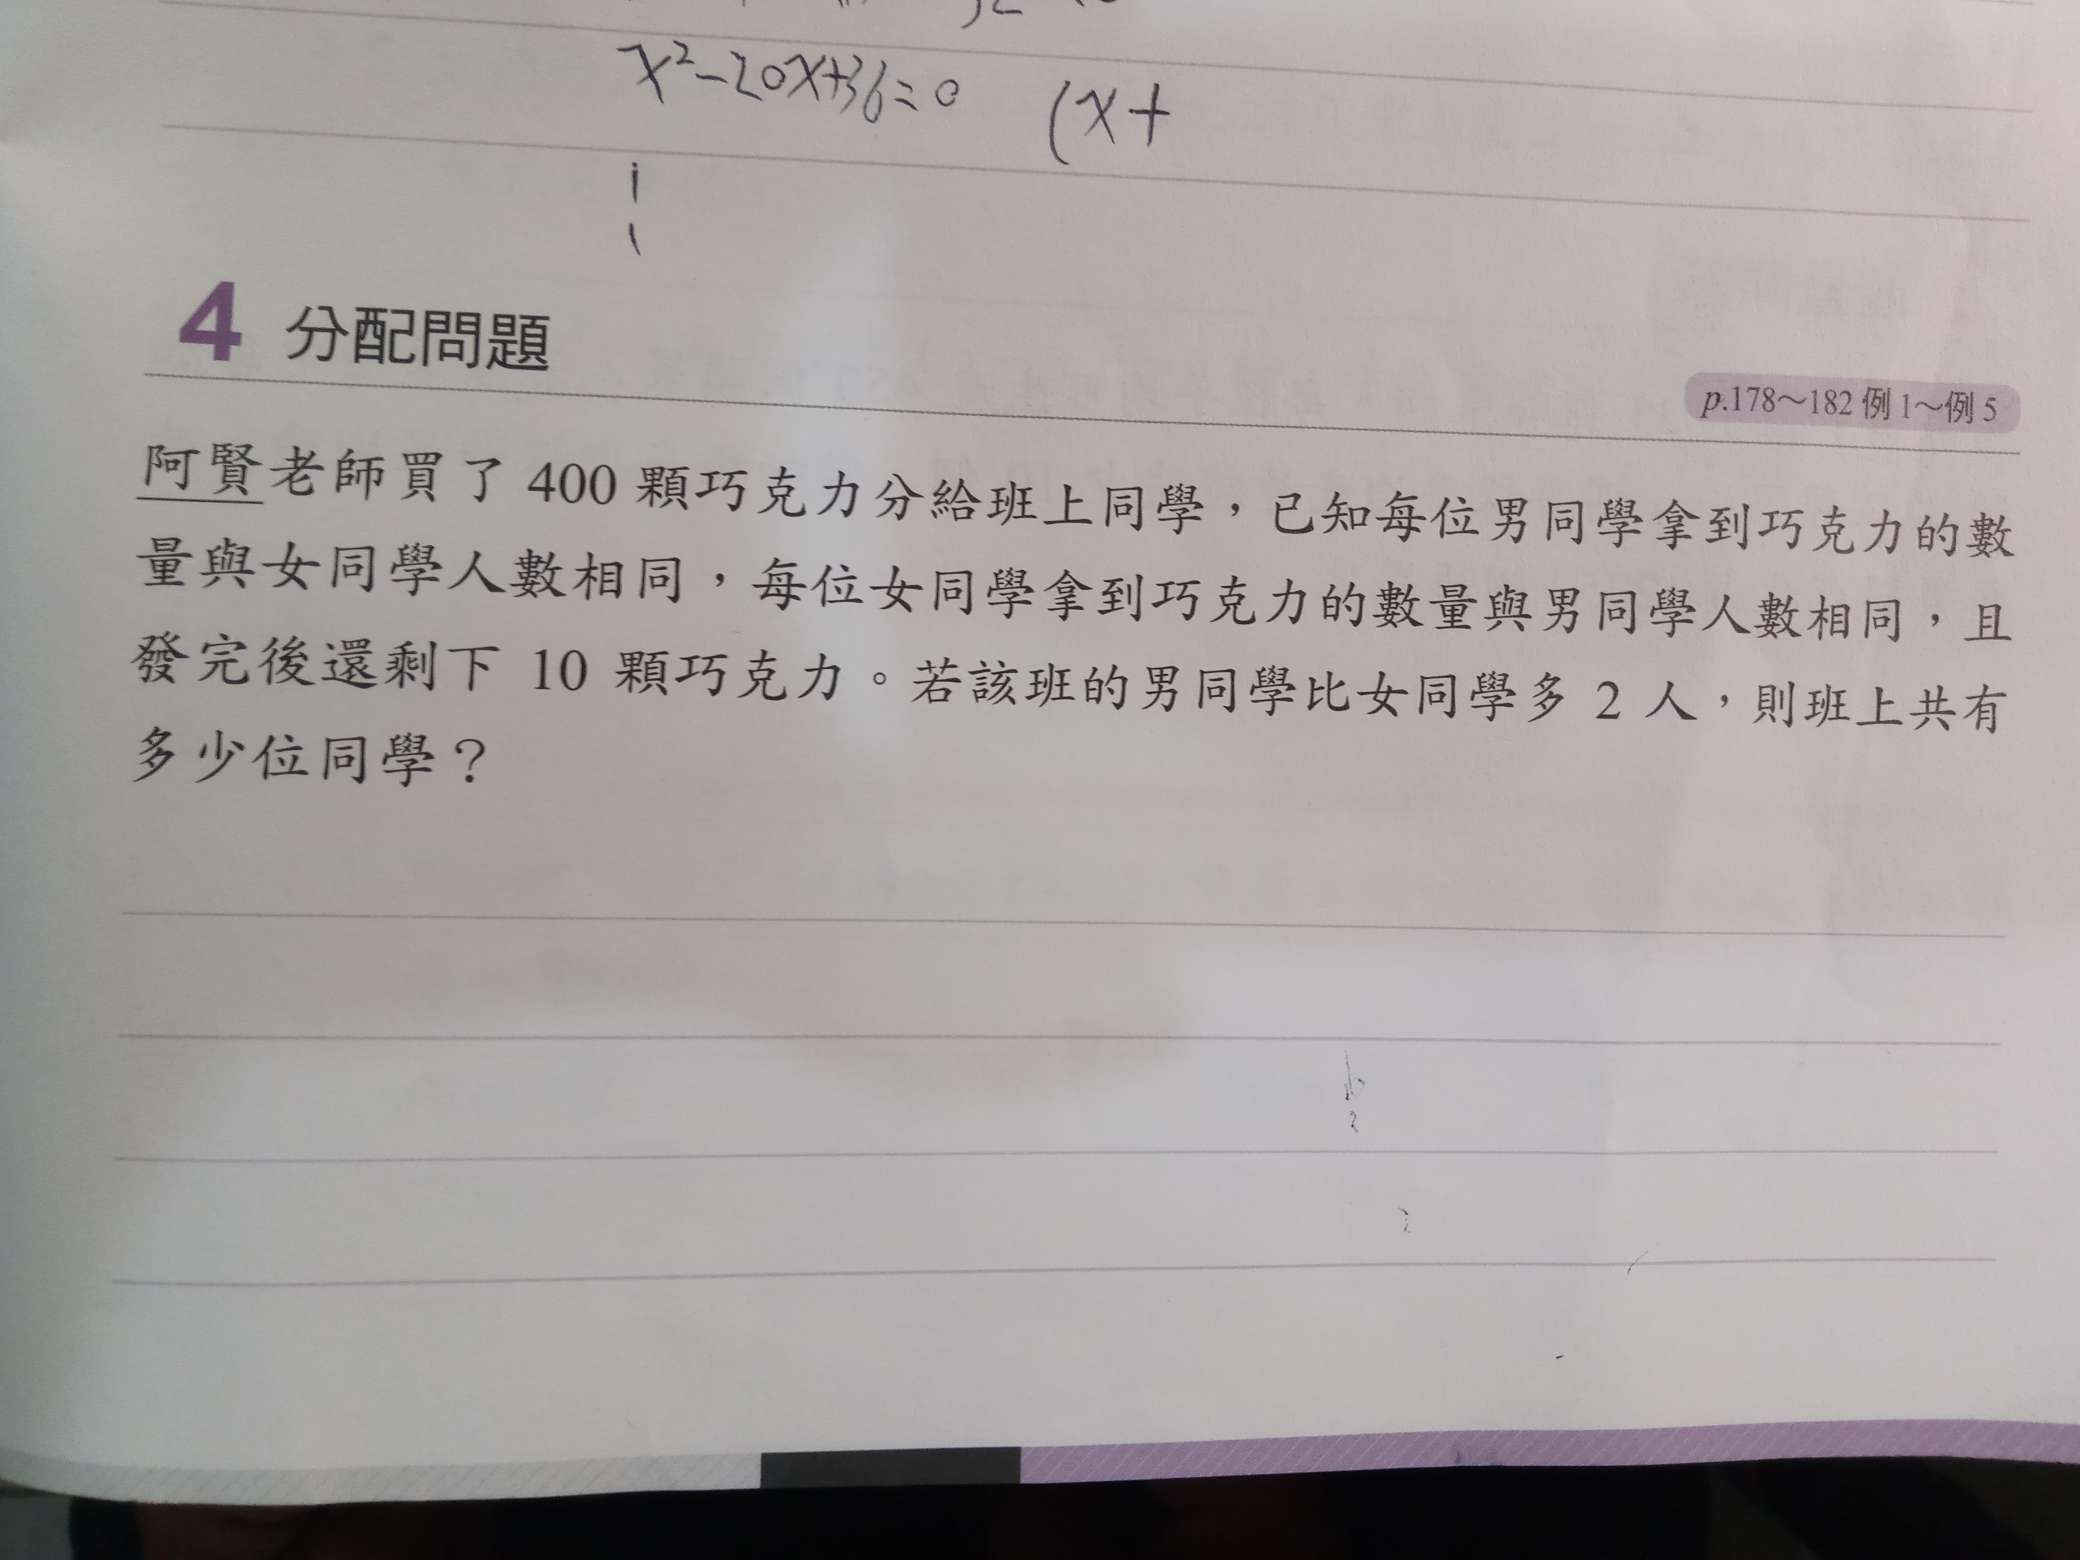 x²-20x+36=0 (x+
4 分配問題
p.178～182 例1～例5
阿賢老師買了 400 顆巧克力分給班上同學，已知每位男同學拿到巧克力的數
量與女同學人數相同，每位女同學拿到巧克力的數量與男同學人數相同，且
發完後還剩下 10 顆巧克力。若該班的男同學比女同學多 2 人，則班上共有
多少位同學？